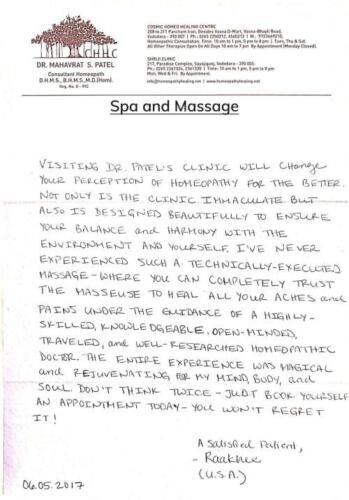 CHHC
DR. MAHAVRAT S. PATEL
Consultant Homeopath
D.H.M.S., B.H.M.S.,M.D.(Hom).
Reg. No. G - 992
COSMIC HOMEO HEALING CENTRE
Vadodara - 390 007
All Other Therapies Open On All Days 10 am to 7 pm By Appointment (Monday Closed).
SHRIJI CLINIC
217, Paradise Complex, Sayajigunj, Vadodara - 390 005.
Mon, Wed & Fri. By Appointment.
Spa and Massage
VISITING DR. PATEL'S CLINIC WILL CHANGE
YOUR PERCEPTION OF HOMEOPATHY FOR THE BETTER.
NOT ONLY IS THE CLINIC IMMACULATE BUT
ALSO IS DESIGNED BEAUTIFULLY TO ENSURE
YOUR BALANCE and HARMONY WITH THE
ENVIRONMENT AND YOURSELF. I'VE NEVER
EXPERIENCED SUCH A TECHNICALLY-EXECUTED
MASSAGE - WHERE YOU CAN COMPLETELY TRUST
THE MASSEUSE TO HEAL ALL YOUR ACHES and
PAINS UNDER THE GUIDANCE OF A HIGHLY-
SKILLED, KNOWLEDGEABLE, OPEN-MINDED,
TRAVELED, and WELL-RESEARCHED HOMEOPATHIC
DOCTOR. THE ENTIRE EXPERIENCE WAS MAGICAL
and REJUVENATING FOR MY MIND, BODY, and
SOUL. DON'T THINK TWICE - JUST BOOK YOURSELF
AN APPOINTMENT TODAY - YOU WON'T REGRET
IT!
A Satisfied Patient,
- Raakhee
(U.S.A.)
06.05.2017